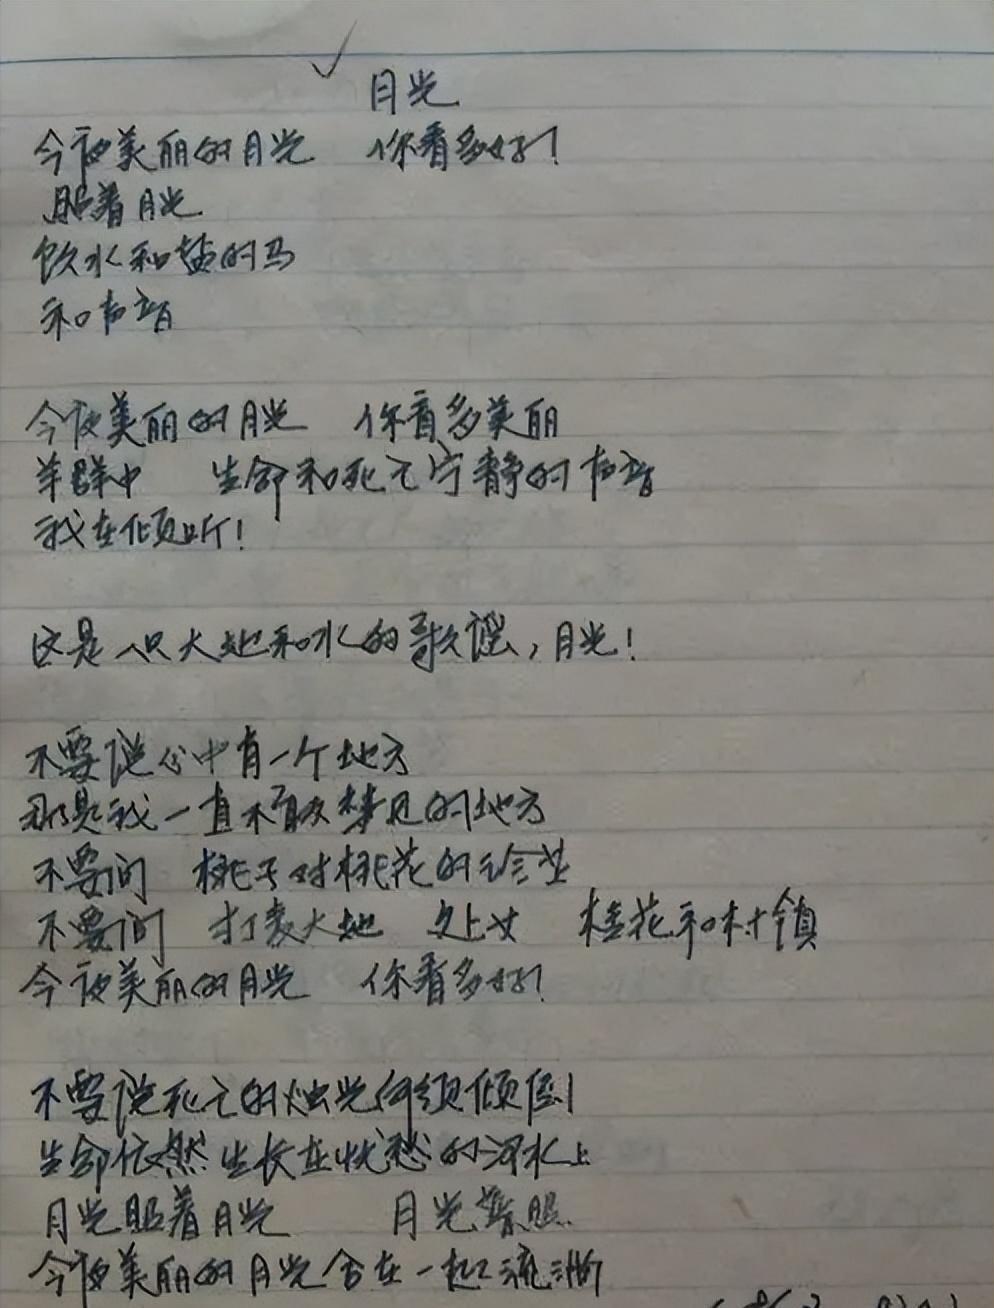 月光
今夜美丽的月光 你看多好!
照着月光
饮水和盐的马
和声音
今夜美丽的月光 你看多美丽
羊群中 生命和死亡宁静的声音
我在倾听!
这是一只大地和水的歌谣,月光!
不要说心中有一个地方
那是我一直不敢梦见的地方
不要问 桃子对桃花的珍藏
不要问 打麦大地 处女 桂花和村镇
今夜美丽的月光 你看多好!
不要说死亡的烛光何须倾倒
生命依然生长在忧愁的河水上
月光照着月光 月光普照
今夜美丽的月光合在一起流淌